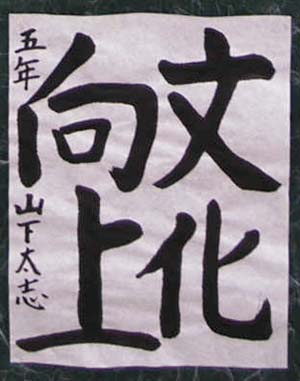 文化
向上
五年 山下太志